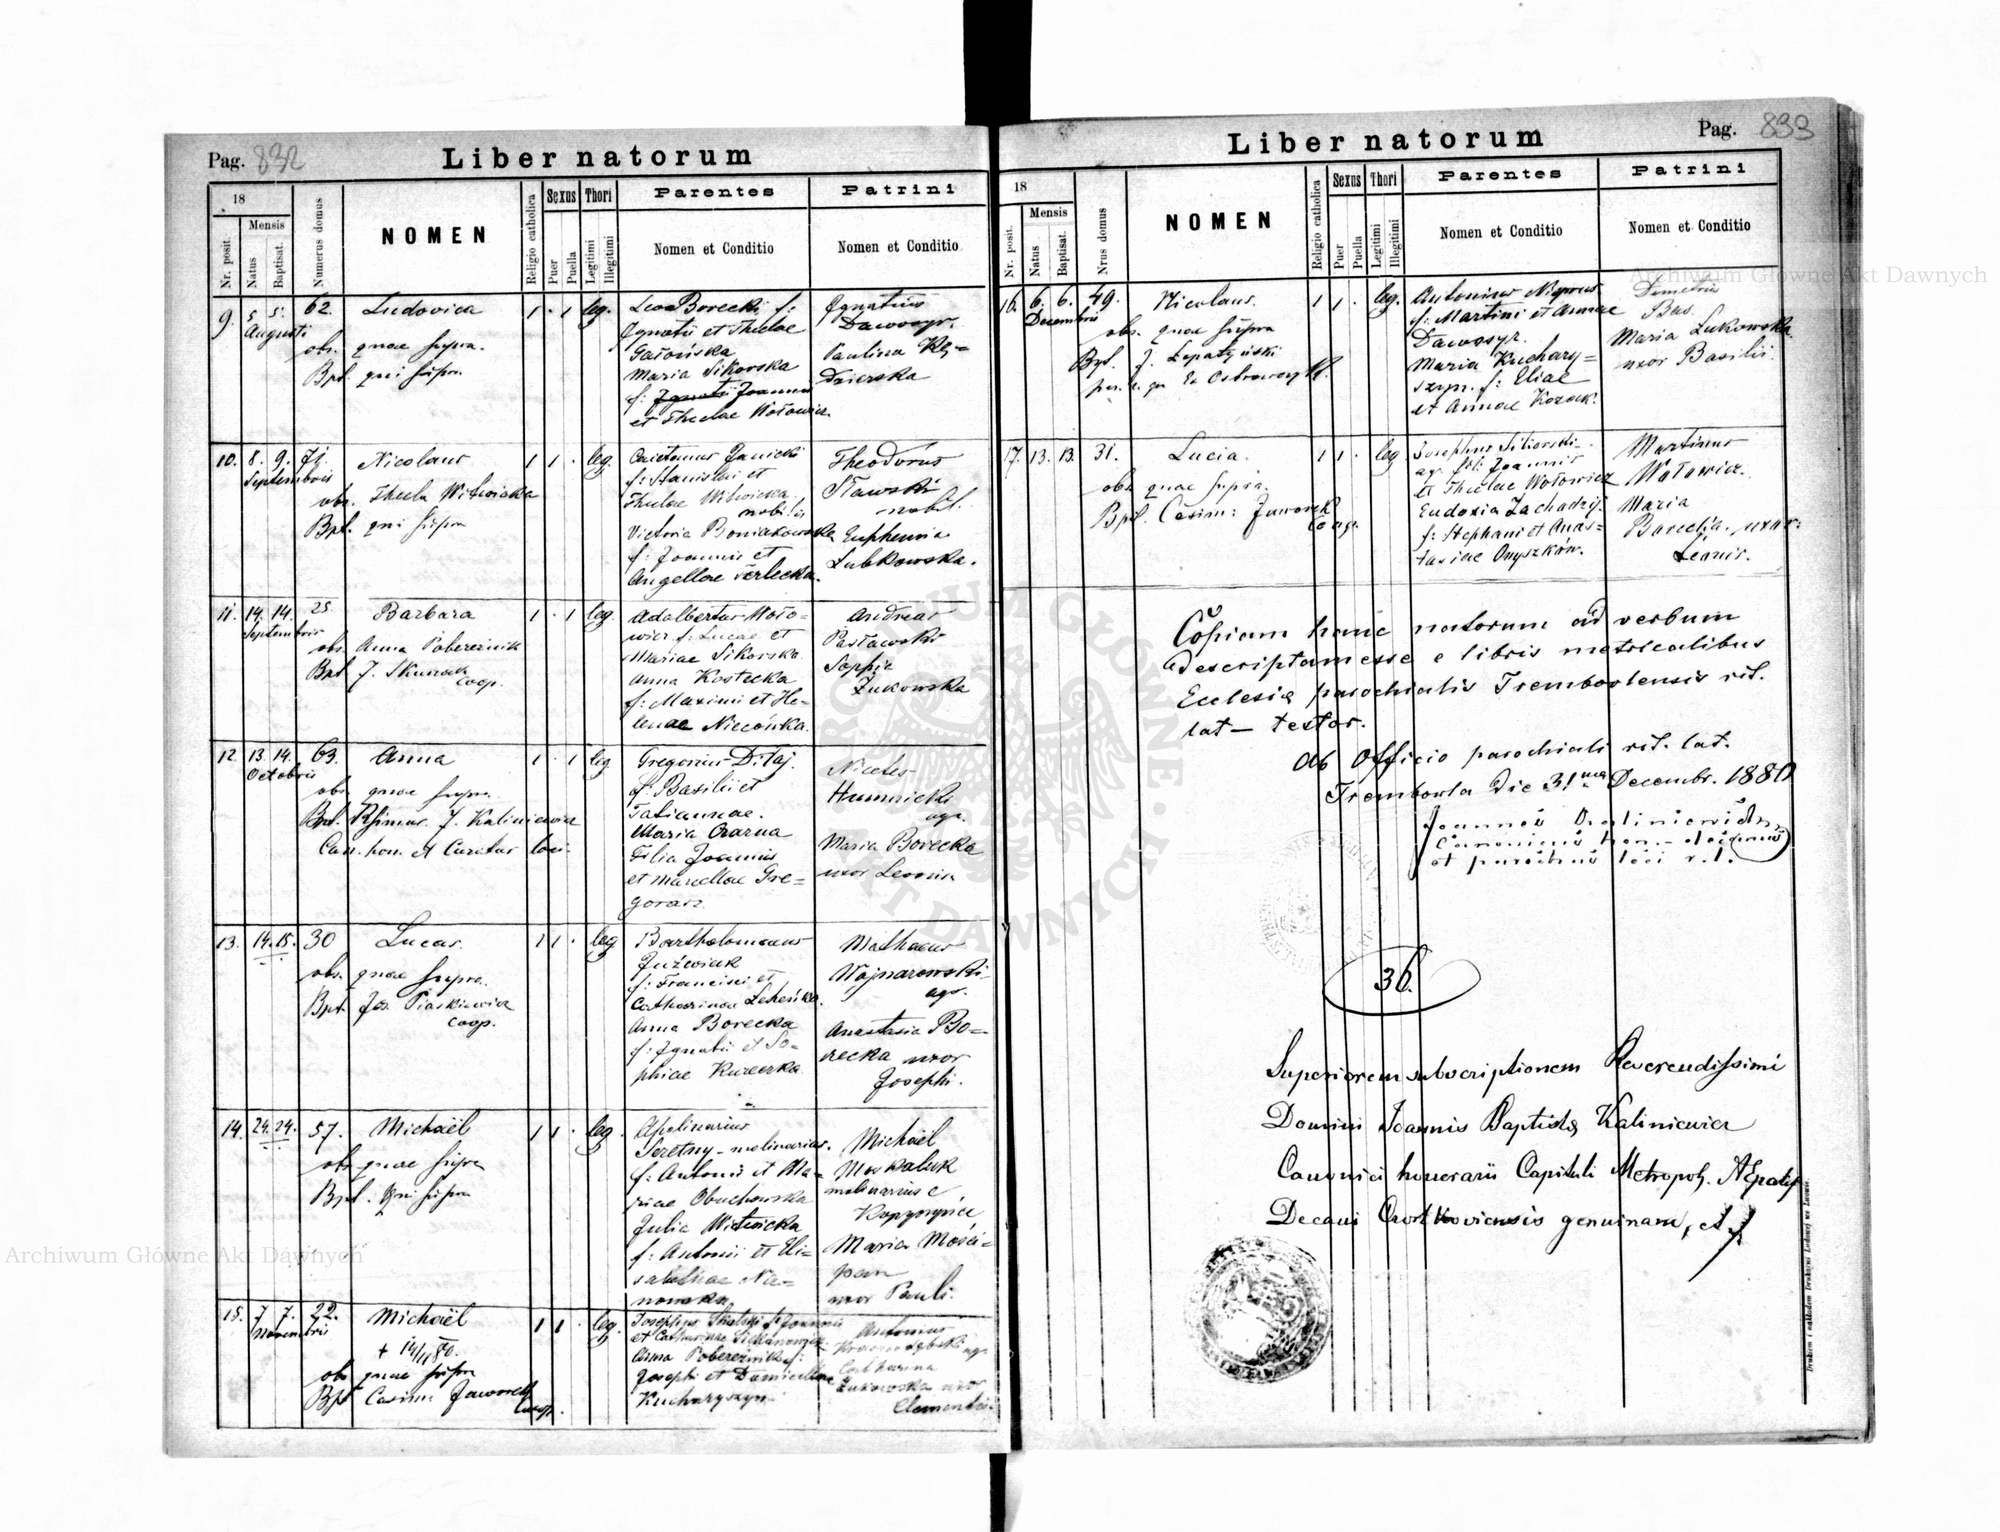 Pag. 832
Liber natorum
18
Mensis
Nr. posit.
Natus
Baptisat.
Numerus domus
NOMEN
Religio catholica
Sexus
Puer
Puella
Thori
Legitimi
Illegitimi
Parentes
Nomen et Conditio
Patrini
Nomen et Conditio
9. 5. 5. 62. Ludovica 1 . 1 leg.
Augusti
obs. quae supra.
Bpt. qui supra
Leo Borecki f:
Ignatii et Theclae
Maria Sikorska
et Theclae Wołowicz
Ignatius
Dawosyr.
Paulina Kę=
dzierska
10. 8. 9. 71. Nicolaus 1 1 . leg.
Septembris
obs. Thecla Witwicka
Bpt. qui supra
Caietanus Janicki
f: Stanislai et
Theclae Witwicka
nobiles
Victoria Boniakowska
f: Joannis et
Angellae
Theodorus
Sławski
nobil.
Euphemia
Lubkowska.
11. 14. 14. 25. Barbara 1 . 1 leg.
Septembris
obs. Anna Pobereznik
Bpt. J. Skurzak
coop.
Adalbertus Woło=
wicz f: Lucae et
Mariae Sikorska
Anna Kostecka
f: Maximi et He=
lenae
Andreas
Pasławski
Sophia
Żukowska
12. 13. 14. 63. Anna 1 . 1 leg.
Octobris
obs. quae supra.
Bpt. J. Kaliniewicz
Can. hon. et Curatus loci.
Gregorius Ditaj.
f. Basilii et
Tatiannae.
Maria Czarna
Filia Joannis
et Marcellae Gre=
gorasz.
Nicetas
Humnicki
agr.
Maria Borecka
uxor Leonis
13. 14. 15. 30 Lucas. 1 1 . leg
obs. quae supra.
Bpt. Jos. Piaskiewicz
coop.
Bartholomaeus
Juzwiak
f: Francisci et
Catharinae
Anna Borecka
f: Ignatii et So=
phiae
Mathaeus
Wojnarowski
agr.
Anastasia Bo=
recka uxor
Josephi.
14. 24. 24. 57. Michaël 1 1 . leg.
obs. quae supra
Bpt. Qui supra
Apolinarius
Seretny - molinarius.
f: Antonii et Ma=
riae Obuchowska
Julia Witwicka
f: Antonii et Eli=
sabethae Na=
nowska
Michaël
Moskaluk
molinarius e
Kopyczyńce
Maria Mości=
pan
uxor Pauli.
15. 7. 7. 22. Michaël 1 1 . leg.
Novembris
obs. quae supra
Bpt Casim. Jaworek
coop.
Josephus
et Catharinae
Anna Pobereznik f:
Josephi et Domicellae
Kucharyszyn
Antonius
agr.
Catharina
Żukowska uxor
Clementis.
Pag. 833
Liber natorum
18
Mensis
Nr. posit.
Natus
Baptisat.
Nrus domus
NOMEN
Religio catholica
Sexus
Puer
Puella
Thori
Legitimi
Illegitimi
Parentes
Nomen et Conditio
Patrini
Nomen et Conditio
16. 6. 6. 49. Nicolaus. 1 1 . leg.
Decembris
obs. quae supra
Bpt. J. Łopatyński
Antonius
f: Martini et Annae
Dawosyr.
Maria Kuchary=
szyn. f: Eliae
et Annae Kozak.
Demetrius
Bas.
Maria Łukowska
uxor Basilii.
17. 13. 13. 31. Lucia. 1 1 . leg
obs. quae supra.
Bpt. Casim: Jaworek
Josephus Sikorski
agr. fil: Joannis
et Theclae Wołowicz
Eudoxia
f: Stephani et Anas=
tasiae Onyszków.
Martinus
Wołowicz.
Maria
Borecka. uxor
Leonis.
Copiam hanc natorum ad verbum
descriptam esse e libris metricalibus
Ecclesiæ parochialis Trembovlensis rit.
lat - testor.
Ab Officio parochiali rit. lat.
Trembowla Die 31ma Decembr. 1880
Joannes Kaliniewicz
Canonicus hon. - decanus
et parochus loci r. l.
36.
Superiorem subscriptionem Reverendissimi
Domini Joannis Baptistæ Kaliniewicz
Canonici honorarii Capituli Metropol.
Decani Czortkoviensis genuinam,
Archiwum Główne Akt Dawnych
Archiwum Główne Akt Dawnych
ARCHIWUM GŁÓWNE AKT DAWNYCH